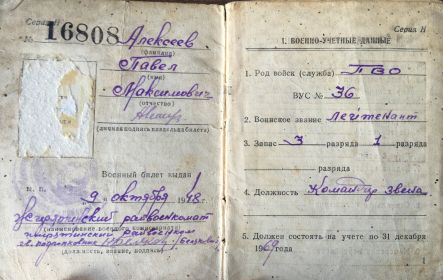 Серия Н
№ 16808 Алексеев
(фамилия)
Павел
(имя)
Максимович
(отчество)
(личная подпись владельца билета)
Военный билет выдан
М. П. 9 октября 1948 г.
райвоенкомат
(наименование военного комиссариата)
(должность, звание, подпись)
Серия Н
I. ВОЕННО-УЧЕТНЫЕ ДАННЫЕ
1. Род войск (служба) ПВО
ВУС № 36
2. Воинское звание Лейтенант
3. Запас 3 разряда 1
разряда
4. Должность Командир звена
5. Должен состоять на учете по 31 декабря
1969 года